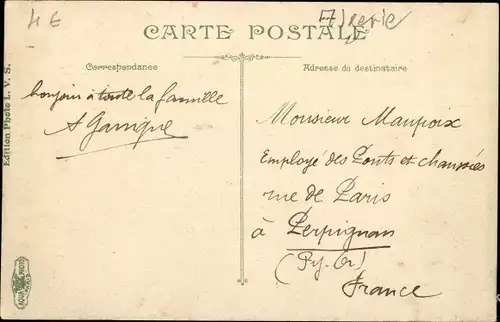 4€
Algérie
CARTE POSTALE
Correspondance
Adresse du destinataire
bonjour à toute la famille
A Garrigue
Monsieur Maupoix
Employé des Ponts et chaussées
rue de Paris
à Perpignan
(Py. Or)
France
Edition Photo L. V. S.